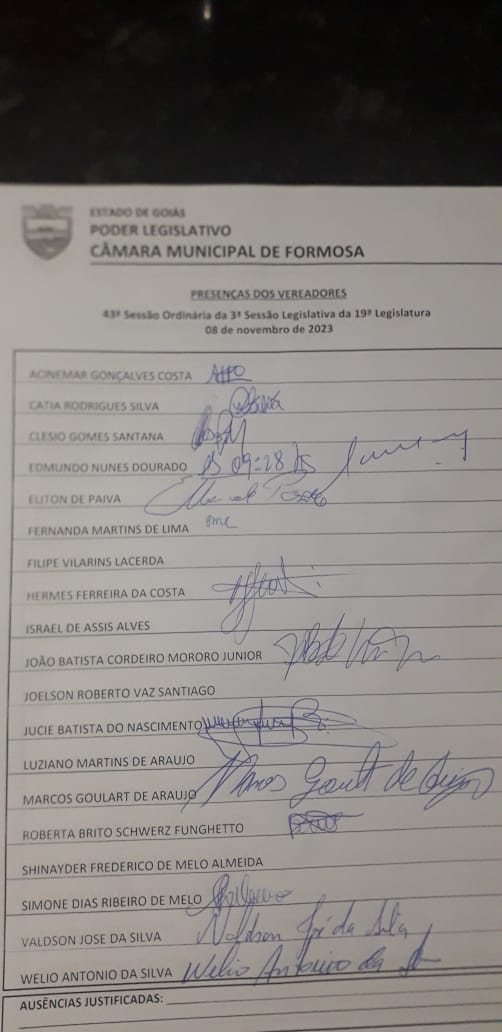 ESTADO DE GOIÁS
PODER LEGISLATIVO
CÂMARA MUNICIPAL DE FORMOSA
PRESENÇAS DOS VEREADORES
43ª Sessão Ordinária da 3ª Sessão Legislativa da 19ª Legislatura
08 de novembro de 2023
ACINEMAR GONÇALVES COSTA
CATIA RODRIGUES SILVA
CLESIO GOMES SANTANA
EDMUNDO NUNES DOURADO 09:28
ELITON DE PAIVA
FERNANDA MARTINS DE LIMA
FILIPE VILARINS LACERDA
HERMES FERREIRA DA COSTA
ISRAEL DE ASSIS ALVES
JOÃO BATISTA CORDEIRO MORORO JUNIOR
JOELSON ROBERTO VAZ SANTIAGO
JUCIE BATISTA DO NASCIMENTO
LUZIANO MARTINS DE ARAUJO
MARCOS GOULART DE ARAUJO
ROBERTA BRITO SCHWERZ FUNGHETTO
SHINAYDER FREDERICO DE MELO ALMEIDA
SIMONE DIAS RIBEIRO DE MELO
VALDSON JOSE DA SILVA
WELIO ANTONIO DA SILVA Welio Antonio da
AUSÊNCIAS JUSTIFICADAS: